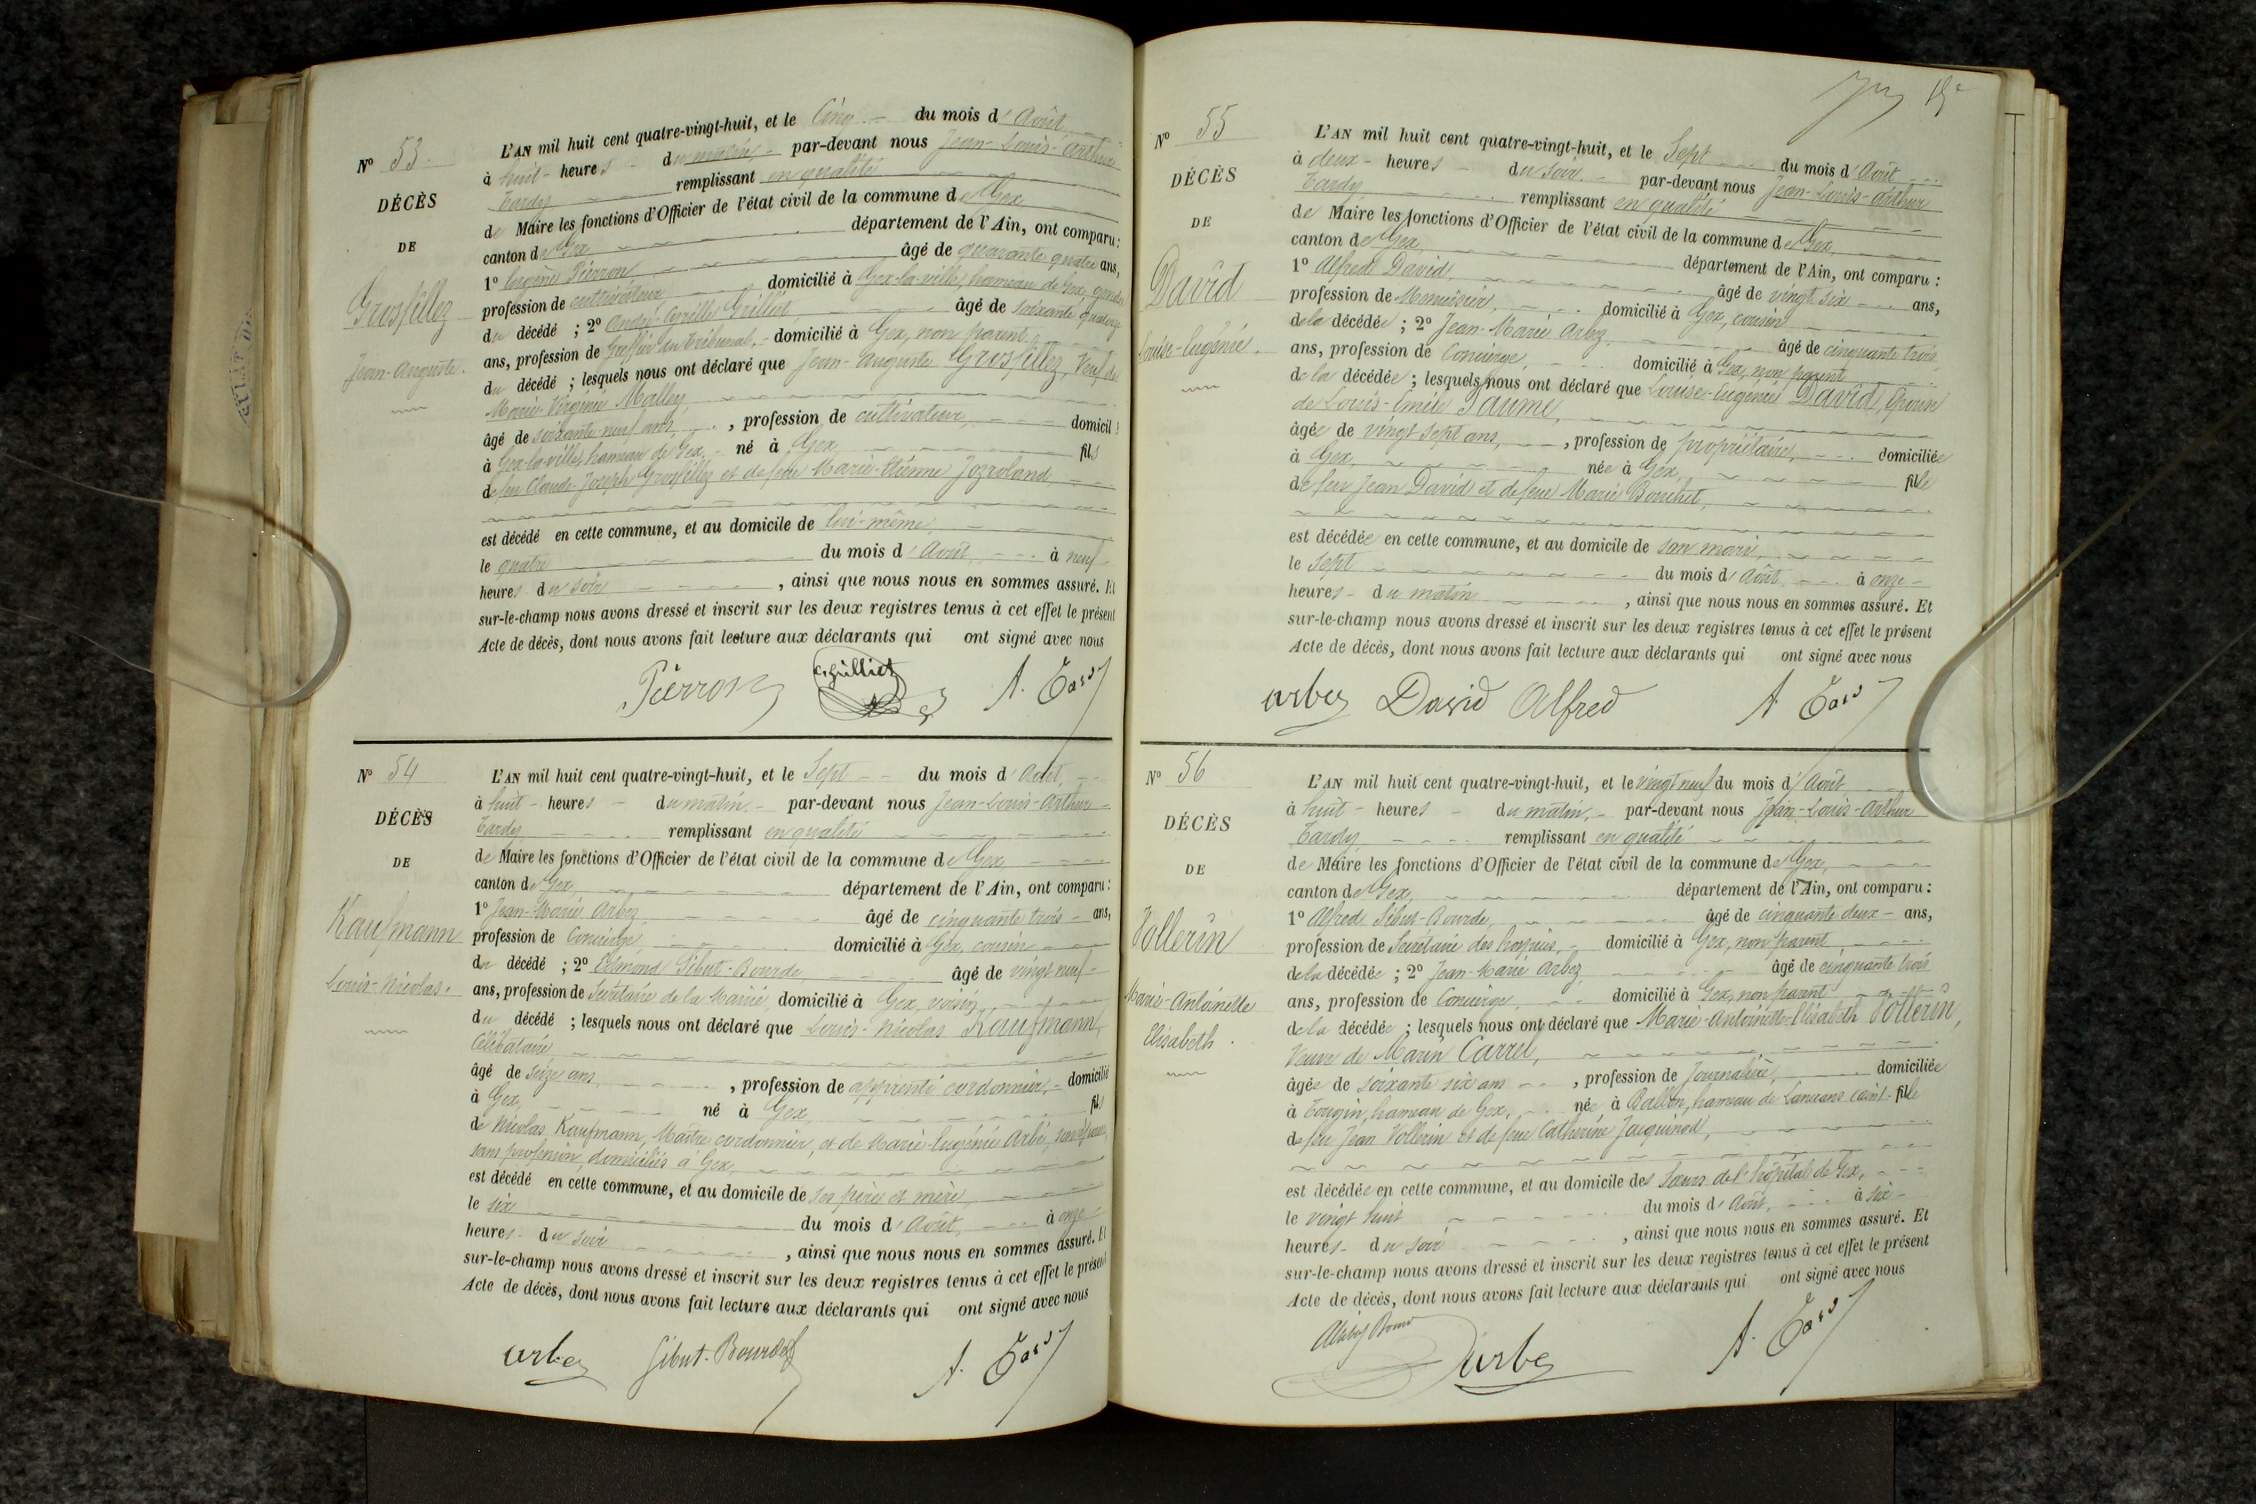 Nº 53
DÉCÈS
DE
Grosfillez
Jean-Auguste.
L'AN mil huit cent quatre-vingt-huit, et le Cinq du mois d'Août
à huit heures du matin, par-devant nous Jean-Louis-Arthur
Tardy remplissant en qualité
de Maire les fonctions d'Officier de l'état civil de la commune de Gex
canton de Gex département de l'Ain, ont comparu :
1º Eugène Pierron âgé de quarante quatre ans,
profession de cultivateur domicilié à Gex-la-ville, hameau de Gex, gendre
du décédé ; 2º André Cyrille Grilliet âgé de soixante quatorze
ans, profession de Greffier du tribunal, domicilié à Gex, non parent
du décédé ; lesquels nous ont déclaré que Jean-Auguste Grosfillez, Veuf de
Marie Virginie Malley
âgé de soixante neuf ans, profession de cultivateur, domicil
à Gex-la-ville, hameau de Gex, né à Gex fils
de feu Claude-Joseph Grosfillez et de feue Marie-Etienne
est décédé en cette commune, et au domicile de lui-même,
le quatre du mois d'Août à neuf
heures du soir, ainsi que nous nous en sommes assuré. Et
sur-le-champ nous avons dressé et inscrit sur les deux registres tenus à cet effet le présent
Acte de décès, dont nous avons fait lecture aux déclarants qui ont signé avec nous
Pierron A. Tardy
Nº 54
DÉCÈS
DE
Kaufmann
Louis-Nicolas.
L'AN mil huit cent quatre-vingt-huit, et le Sept du mois d'Août
à huit heures du matin par-devant nous Jean-Louis-Arthur
Tardy remplissant en qualité
de Maire les fonctions d'Officier de l'état civil de la commune de Gex
canton de Gex département de l'Ain, ont comparu :
1º Jean-Marie Arbez âgé de cinquante trois ans,
profession de Concierge domicilié à Gex, cousin
du décédé ; 2º Edmond Sibut-Bourde, âgé de vingt neuf
ans, profession de Secrétaire de la Mairie, domicilié à Gex, voisin,
du décédé ; lesquels nous ont déclaré que Louis-Nicolas Kaufmann,
Célibataire,
âgé de seize ans, profession de apprenti cordonnier, domicilié
à Gex, né à Gex fils
de Nicolas Kaufmann, Maître cordonnier, et de Marie-Eugénie
sans profession, domiciliés à Gex,
est décédé en cette commune, et au domicile de ses père et mère,
le six du mois d'Août à onze
heures du soir, ainsi que nous nous en sommes assuré. Et
sur-le-champ nous avons dressé et inscrit sur les deux registres tenus à cet effet le présent
Acte de décès, dont nous avons fait lecture aux déclarants qui ont signé avec nous
Arbez Sibut-Bourde A. Tardy
Nº 55
DÉCÈS
DE
David
Louise-Eugénie.
L'AN mil huit cent quatre-vingt-huit, et le Sept du mois d'Août
à deux heures du soir par-devant nous Jean-Louis-Arthur
Tardy remplissant en qualité
de Maire les fonctions d'Officier de l'état civil de la commune de Gex,
canton de Gex département de l'Ain, ont comparu :
1º Alfred David, âgé de vingt six ans,
profession de Menuisier, domicilié à Gex, cousin
de la décédée ; 2º Jean-Marie Arbez âgé de cinquante trois
ans, profession de Concierge, domicilié à Gex, non parent
de la décédée ; lesquels nous ont déclaré que Louise-Eugénie David, Epouse
de Louis-Emile Paume,
âgée de vingt sept ans, profession de propriétaire, domiciliée
à Gex, née à Gex, fille
de feu Jean David et de feue Marie Bouchet,
est décédée en cette commune, et au domicile de son mari,
le Sept du mois d'Août à onze
heures du matin, ainsi que nous nous en sommes assuré. Et
sur-le-champ nous avons dressé et inscrit sur les deux registres tenus à cet effet le présent
Acte de décès, dont nous avons fait lecture aux déclarants qui ont signé avec nous
Arbez David Alfred A. Tardy
Nº 56
DÉCÈS
DE
Vollerin
Marie-Antoinette
Elisabeth.
L'AN mil huit cent quatre-vingt-huit, et le vingt neuf du mois d'Août
à huit heures du matin, par-devant nous Jean-Louis-Arthur
Tardy remplissant en qualité
de Maire les fonctions d'Officier de l'état civil de la commune de Gex,
canton de Gex, département de l'Ain, ont comparu :
1º Alfred Sibut-Bourde, âgé de cinquante deux ans,
profession de Secrétaire des hospices, domicilié à Gex, non parent
de la décédée ; 2º Jean-Marie Arbez âgé de cinquante trois
ans, profession de Concierge, domicilié à Gex, non parent
de la décédée ; lesquels nous ont déclaré que Marie-Antoinette-Elisabeth Vollerin,
Veuve de Marin Carrel,
âgée de soixante six ans, profession de Journalière, domiciliée
à Tougin, hameau de Gex, née à hameau de fille
de feu Jean Vollerin et de feue Catherine Jacquinod,
est décédée en cette commune, et au domicile des Sœurs de l'hôpital de Gex,
le vingt huit du mois d'Août, à six
heures du soir, ainsi que nous nous en sommes assuré. Et
sur-le-champ nous avons dressé et inscrit sur les deux registres tenus à cet effet le présent
Acte de décès, dont nous avons fait lecture aux déclarants qui ont signé avec nous
Arbez A. Tardy